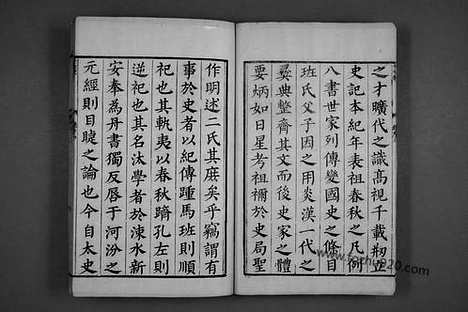 之才曠代之識高視千載剏立
史記本紀年表祖春秋之凡例
八書世家列傳變國史之條目
班氏父子因之用炎漢一代之
彛典整齊其文而後史家之體
要炳如日星考祖禰於史局聖
作明述二氏其庶矣乎竊謂有
事於史者以紀傳踵馬班則順
祀也其軌夷以春秋躋孔左則
逆祀也其名汰學者於涑水新
安奉為丹書獨反唇于河汾之
元經則目睫之論也今自太史